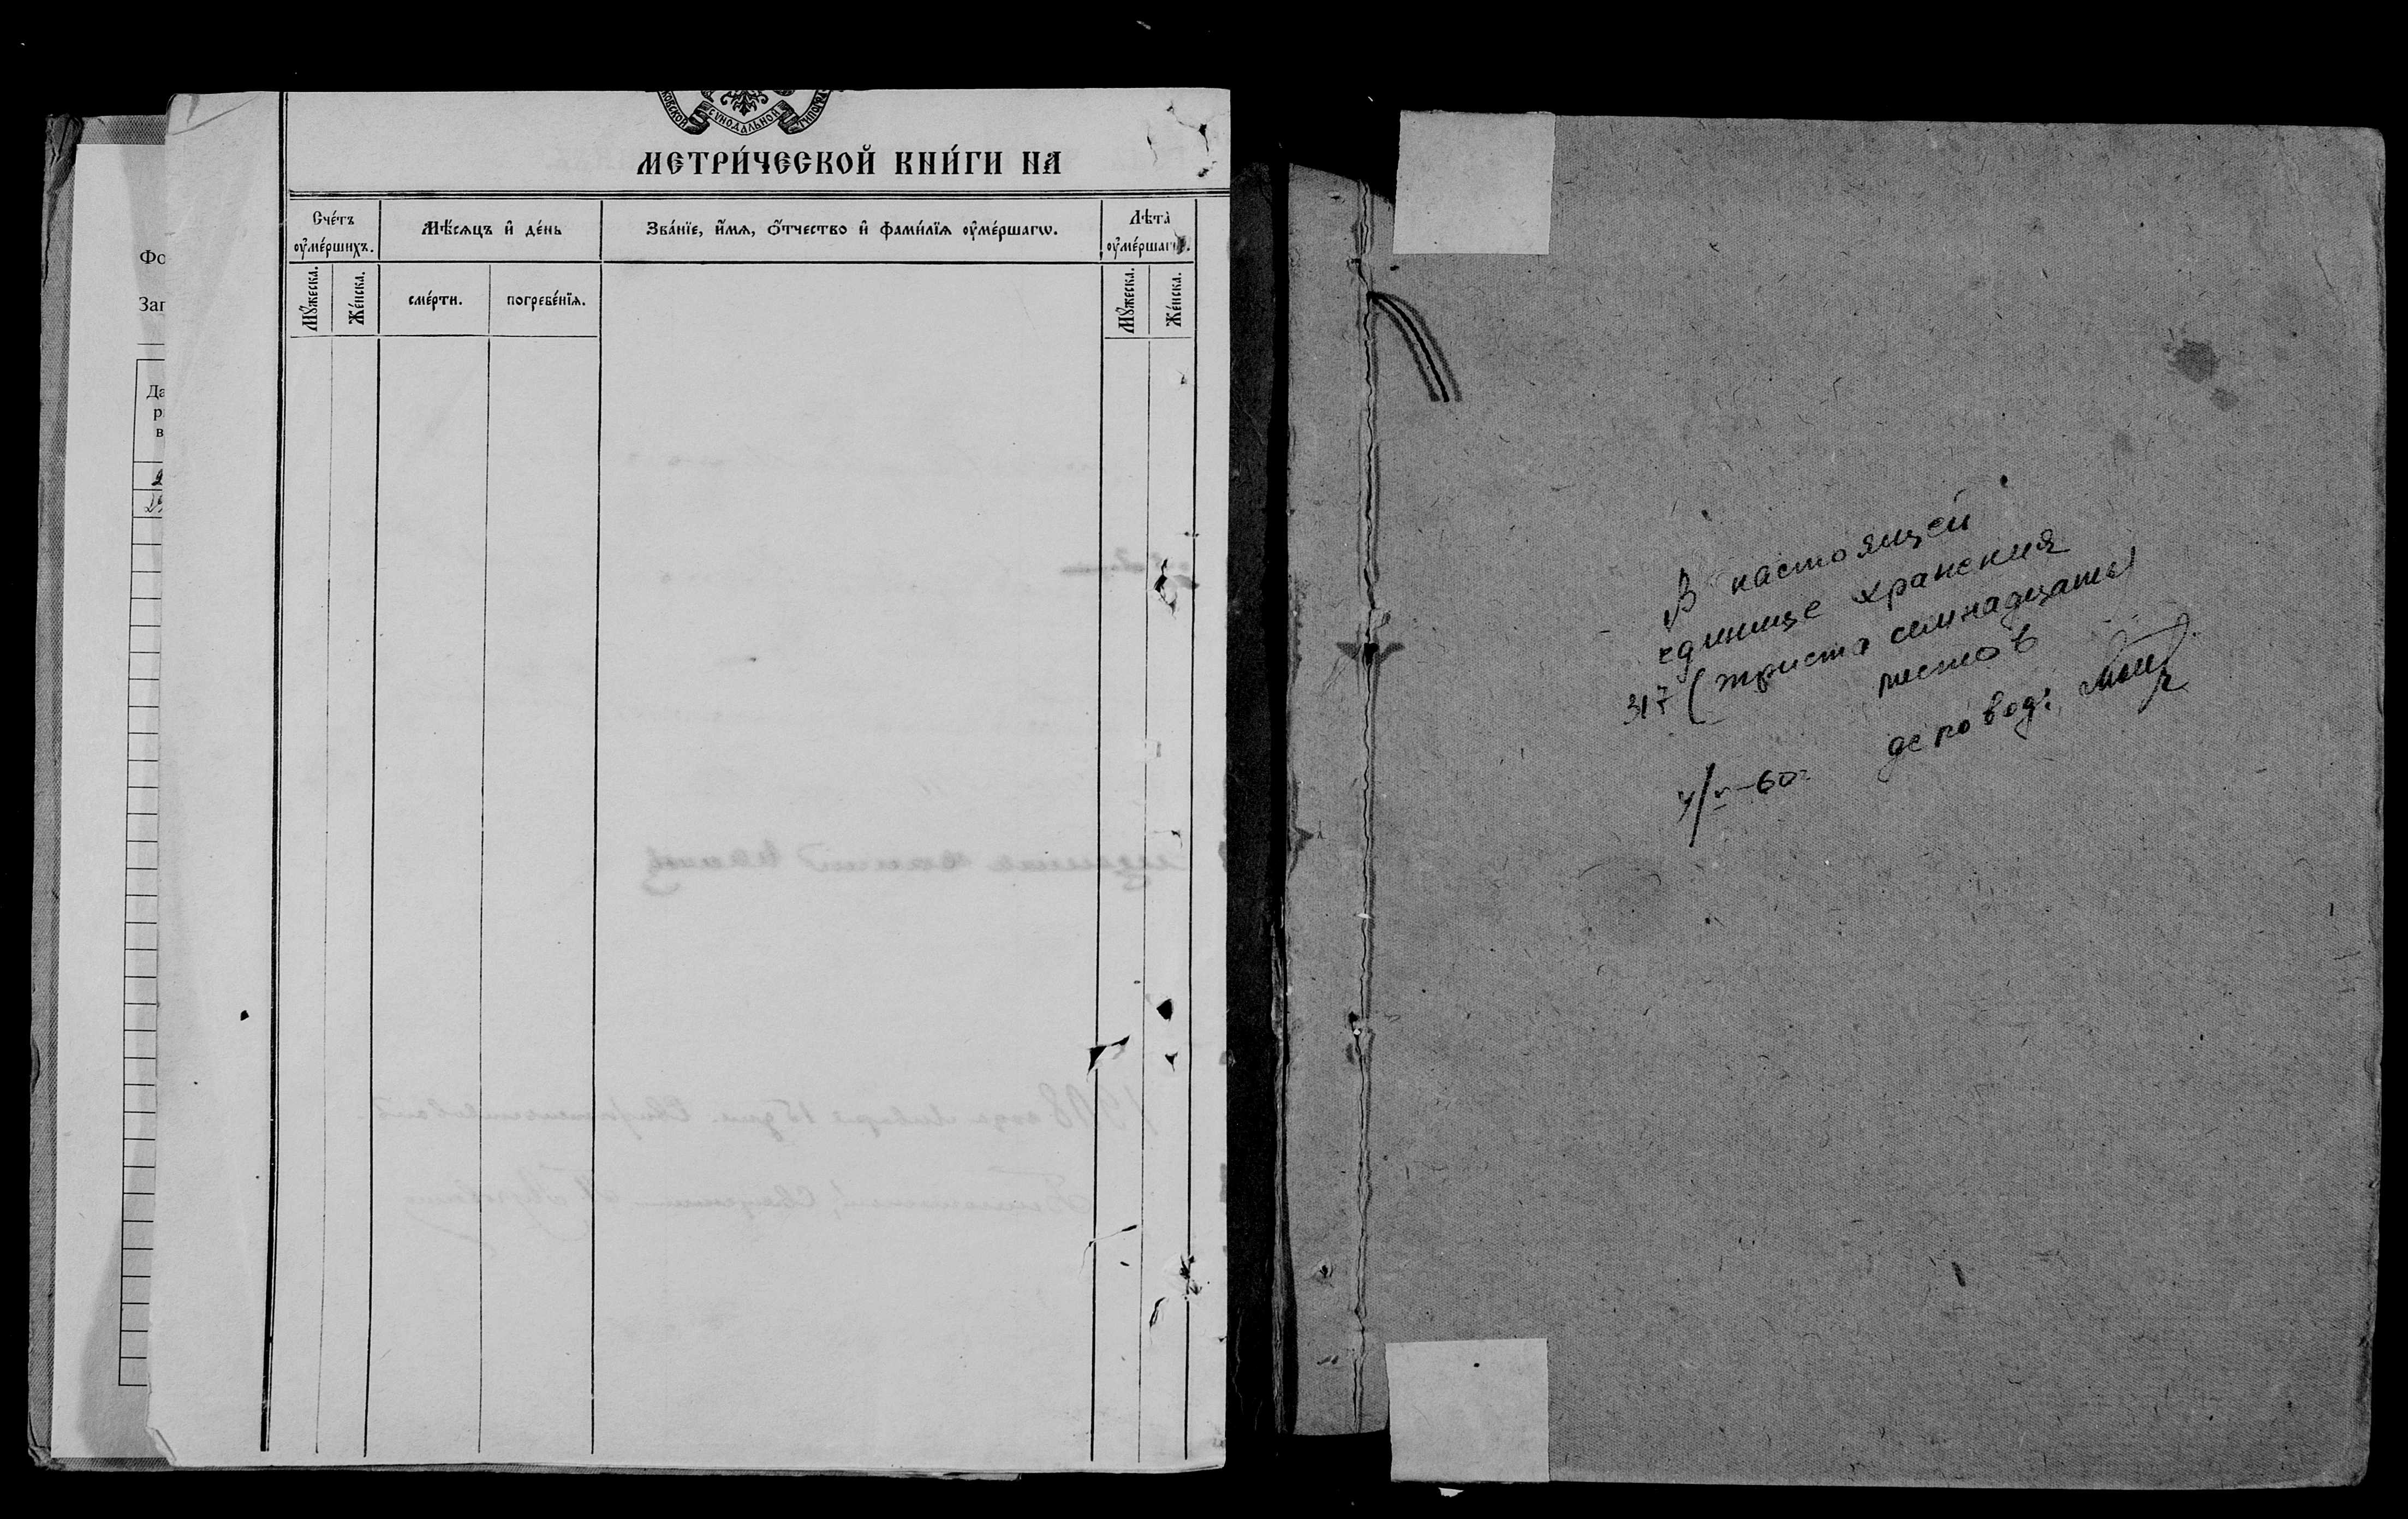 Фо
Заг
Да
р
в
МОСКОВСКОЙ СѴНОДАЛЬНОЙ ТИПОГРА
МЕТРИ́ЧЕСКОЙ КНИ́ГИ НА
Сче́тъ ᲂу҆ме́ршихъ.
Мѣ́сяцъ и҆ де́нь
Зва́нїе, и҆́мѧ, ѻ҆́тчество и҆ фами́лїѧ ᲂу҆ме́ршагѡ.
Лѣта̀ ᲂу҆ме́ршагѡ.
Мꙋ́жеска.
Же́нска.
сме́рти.
погребе́нїѧ.
Мꙋ́жеска.
Же́нска.
В настоящей
единице хранения
317 (триста семнадцать)
листов
деловод:
4/V-60г.